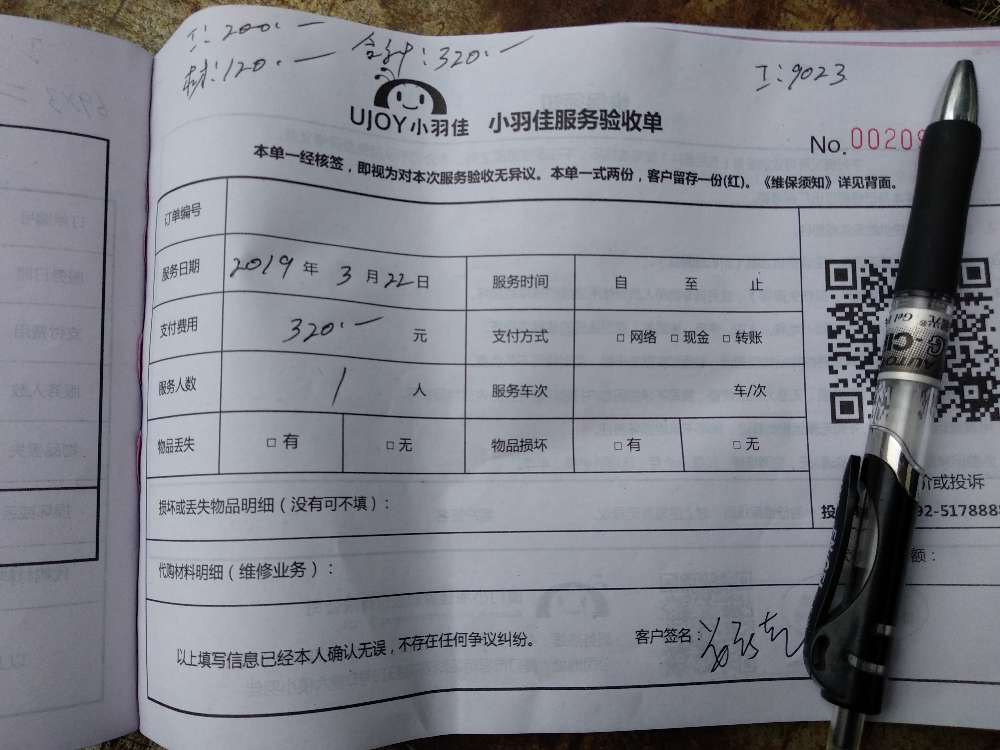 工:200.一
材:120.一 合计:320.一
工:9023
UJOY小羽佳 小羽佳服务验收单
No.00209
本单一经核签，即视为对本次服务验收无异议。本单一式两份，客户留存一份(红)。《维保须知》详见背面。
订单编号
服务日期 2019年3月22日 服务时间 自 至 止
支付费用 320.一 元 支付方式 □网络 □现金 □转账
服务人数 1 人 服务车次 车/次
物品丢失 □有 □无 物品损坏 □有 □无
价或投诉
损坏或丢失物品明细（没有可不填）：
投 92-5178888
额：
代购材料明细（维修业务）：
以上填写信息已经本人确认无误，不存在任何争议纠纷。 客户签名：